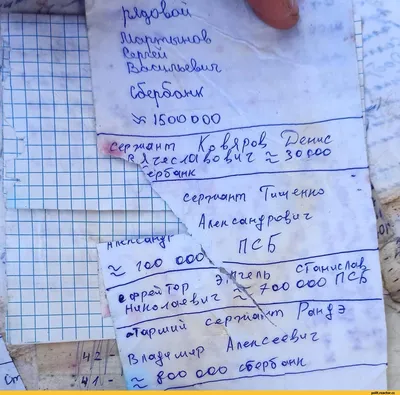 рядовой
Мартынов
Сергей
Васильевич
Сбербанк
≈ 1500000
сержант Ковяров Денис
Вячеславович ≈ 30000
ербанк
сержант Тищенко
Александрович
ПСБ
Александ
≈ 100 000
ефрейтор Энгель Станислав
Николаевич ≈ 700 000 ПСБ
старший сержант Рандэ
Владимир Алексеевич
≈ 800 000 сбербанк
42
41.-